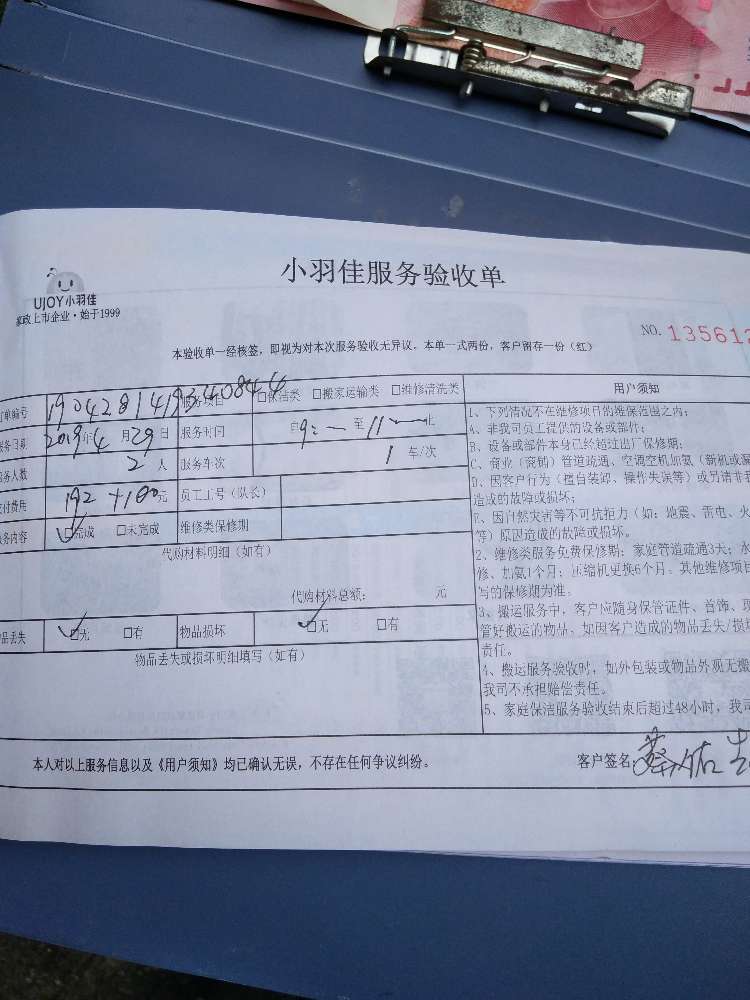 小羽佳服务验收单
UJOY小羽佳
家政上市企业·始于1999
NO. 135612
本验收单一经核签，即视为对本次服务验收无异议。本单一式两份，客户留存一份（红）
单编号 服务项目 □保洁类 □搬家运输类 □维修清洗类
服务日期 2019年4月29日 服务时间 自9:— 至11:—止
务人数 2人 服务车次 1车/次
付费用 192+100元 员工工号（队长）
务内容 ☑完成 □未完成 维修类保修期
代购材料明细（如有）
代购材料总额： 元
品丢失 ☑无 □有 物品损坏 ☑无 □有
物品丢失或损坏明细填写（如有）
用户须知
1、下列情况不在维修项目的维保范围之内：
A、非我司员工提供的设备或部件；
B、设备或部件本身已经超过出厂保修期；
C、商业（商销）管道疏通、空调空机加氨（新机或漏
D、因客户行为（擅自装卸、操作失误等）或另请非我
造成的故障或损坏；
E、因自然灾害等不可抗拒力（如：地震、雷电、火
等）原因造成的故障或损坏。
2、维修类服务免费保修期：家庭管道疏通3天；水
修、加氨1个月；压缩机更换6个月。其他维修项目
写的保修期为准。
3、搬运服务中，客户应随身保管证件、首饰、现
管好搬运的物品，如因客户造成的物品丢失/损坏
责任。
4、搬运服务验收时，如外包装或物品外观无搬
我司不承担赔偿责任。
5、家庭保洁服务验收结束后超过48小时，我司
本人对以上服务信息以及《用户须知》均已确认无误，不存在任何争议纠纷。
客户签名：蔡佑